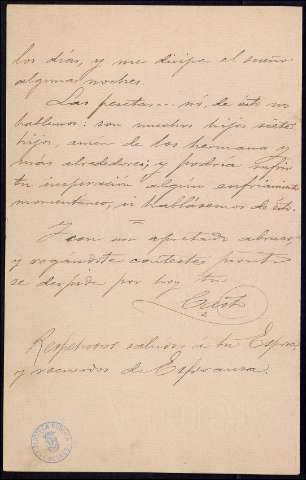 los días, y me disipe el sueño
algunas noches.
Las pesetas... nó, de ésto no
hablemos: son muchos hijos siete
hijos, amen de los hermanos y
más alrededores; y podría sufrir
tu inspiración algun enfriamiento
momentaneo, si hablásemos de ésto.
=
Y con un apretado abrazo
y rogándote contestes pronto
se despide por hoy tu
Respetuosos saludos á tu Esposa
y recuerdos de Esperanza.